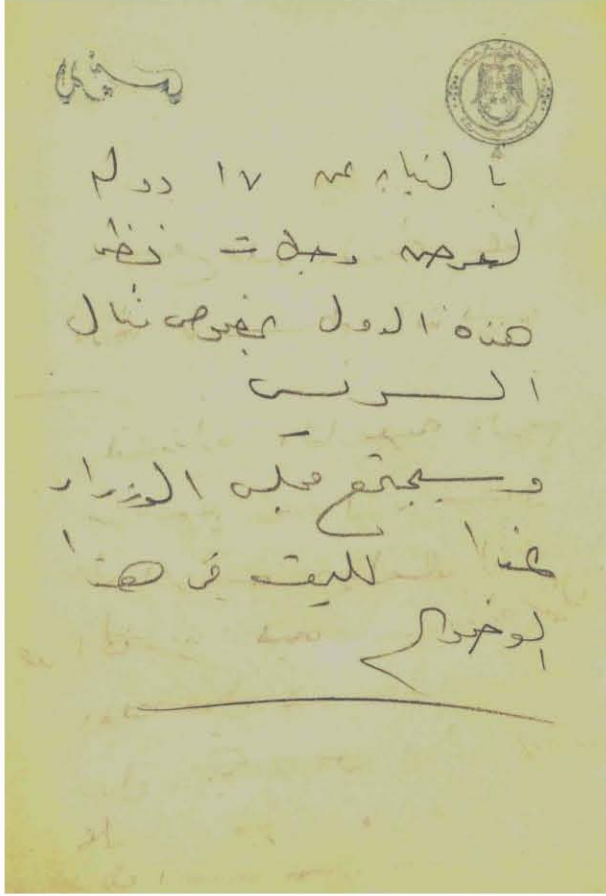 بالنيابة عن ١٧ دولة
لعرض وجهات نظر
هذه الدول بخصوص قنال
السويس
وسيجتمع مجلس الوزراء
غدا للبت في هذا
الموضوع